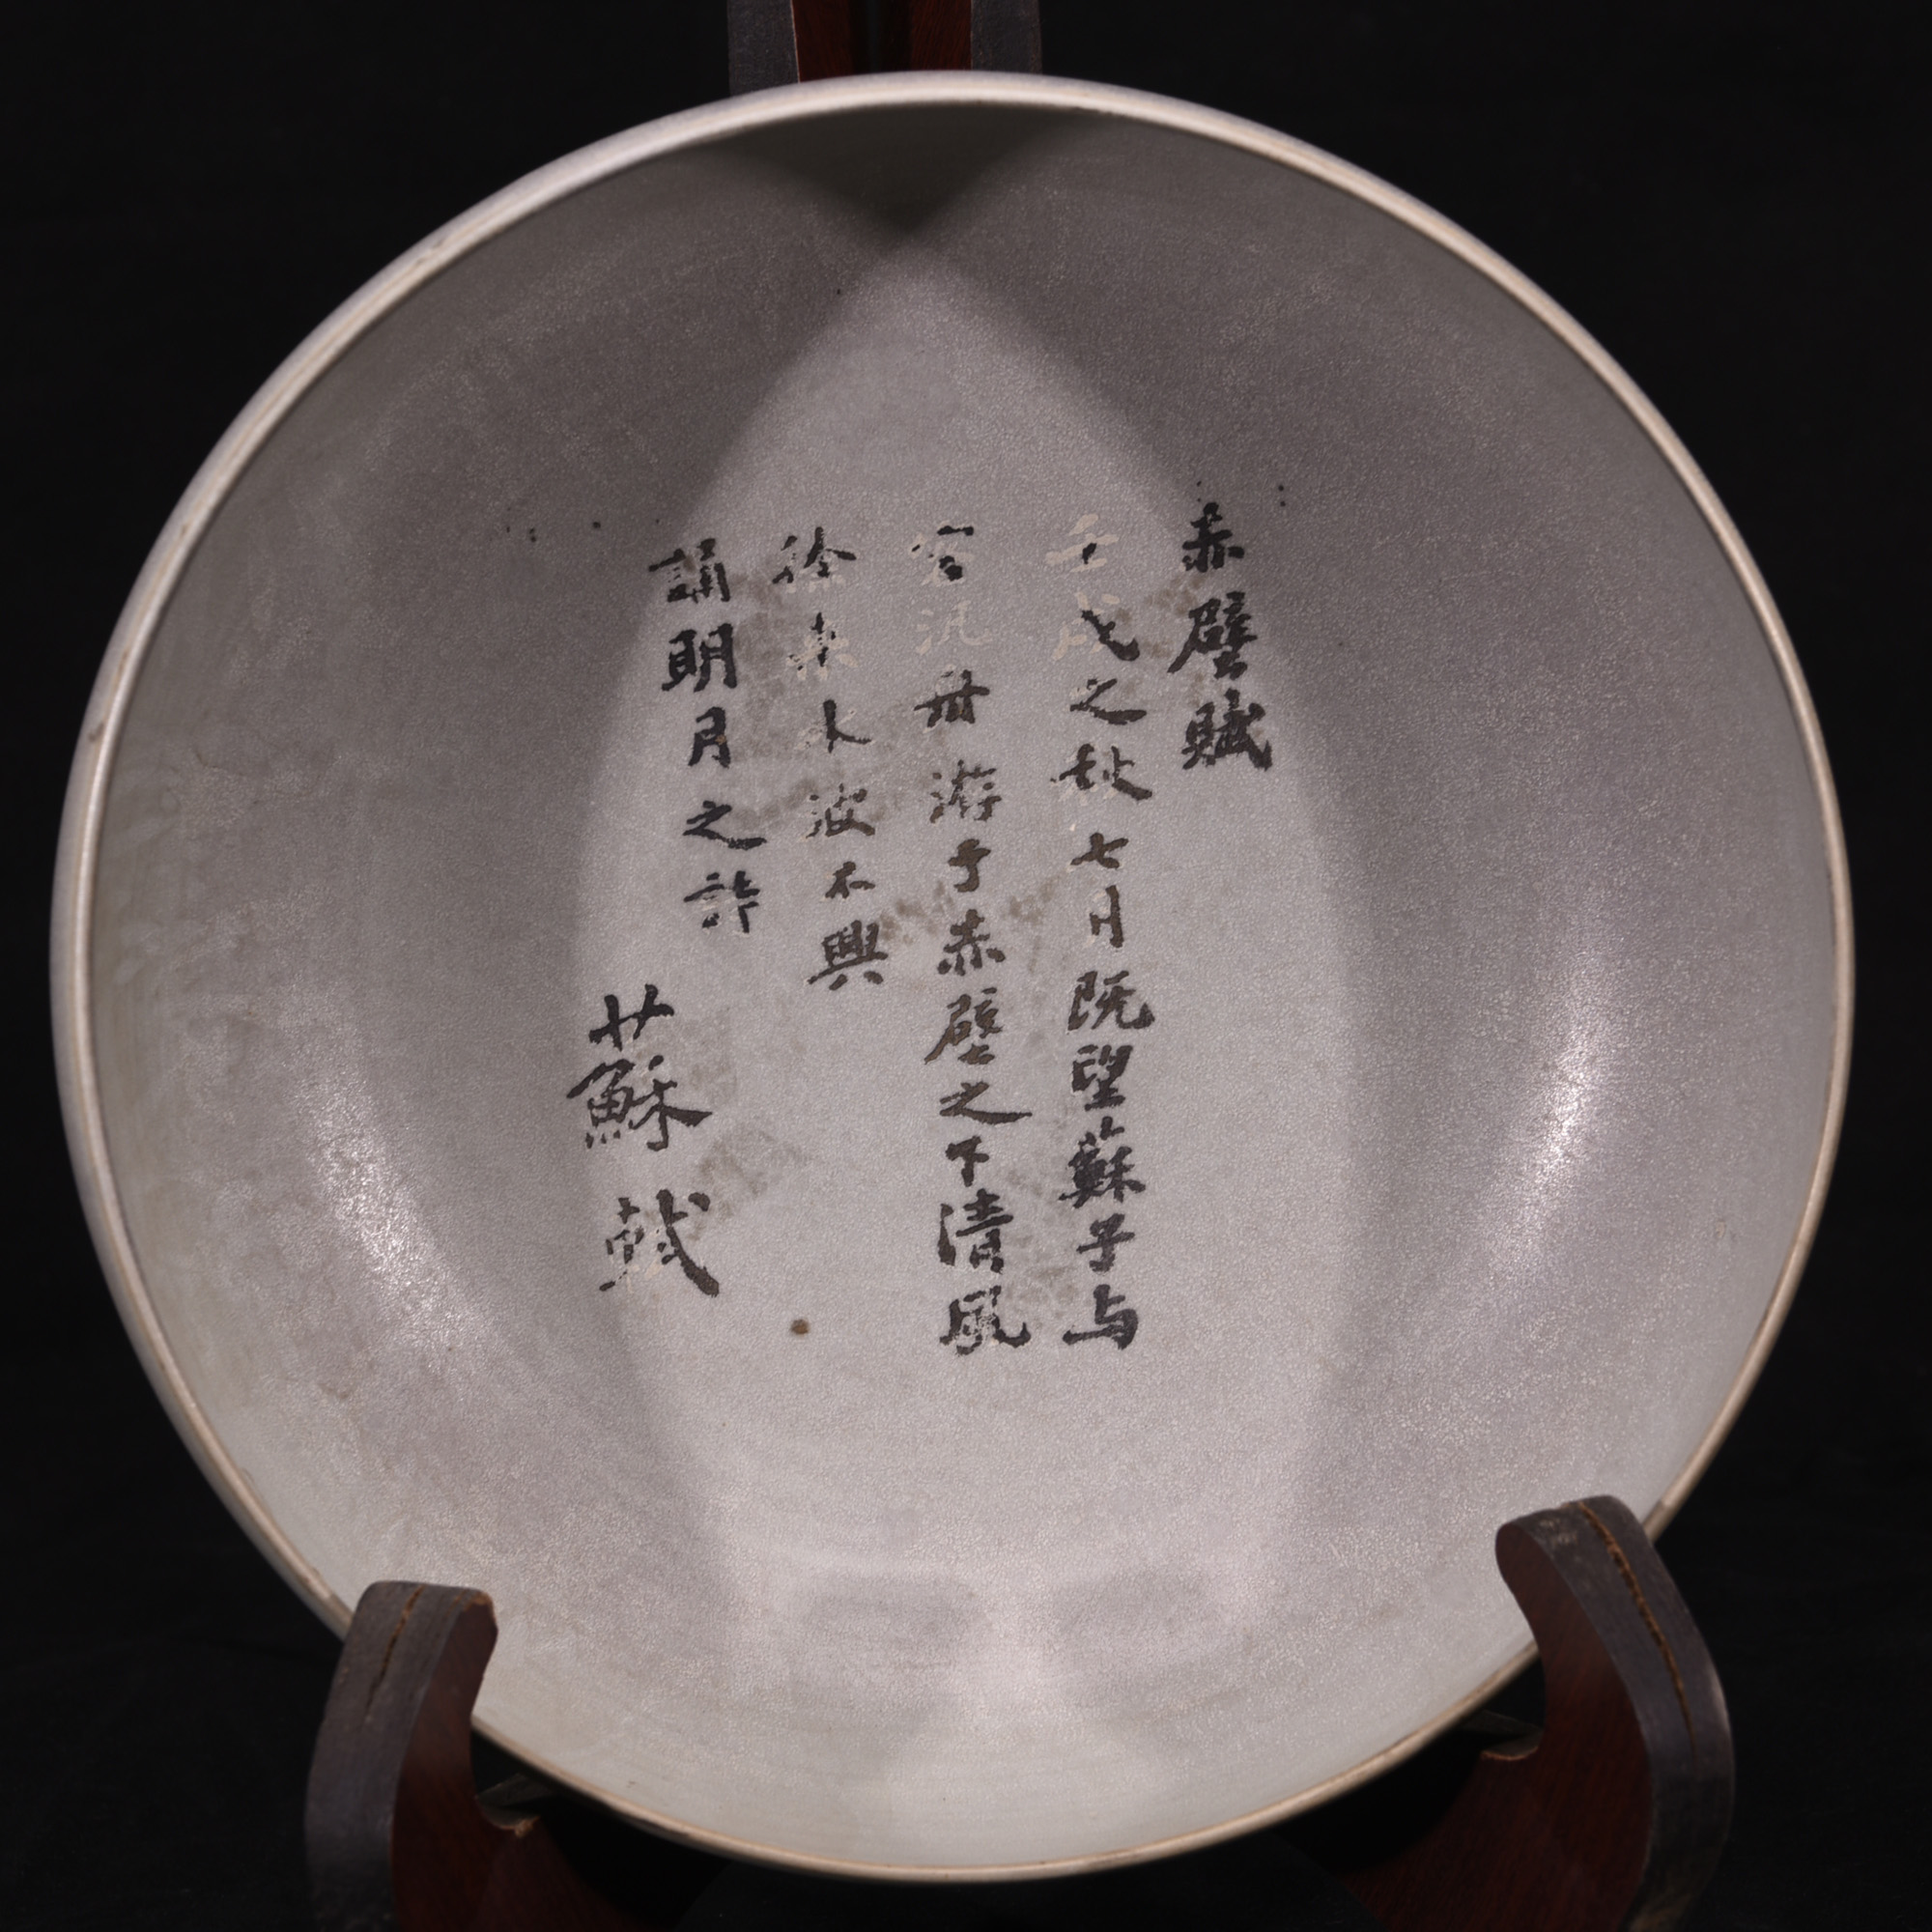 赤壁賦
壬戌之秋七月既望蘇子与
客汎舟游于赤壁之下清風
徐来水波不興
誦明月之詐
蘇軾